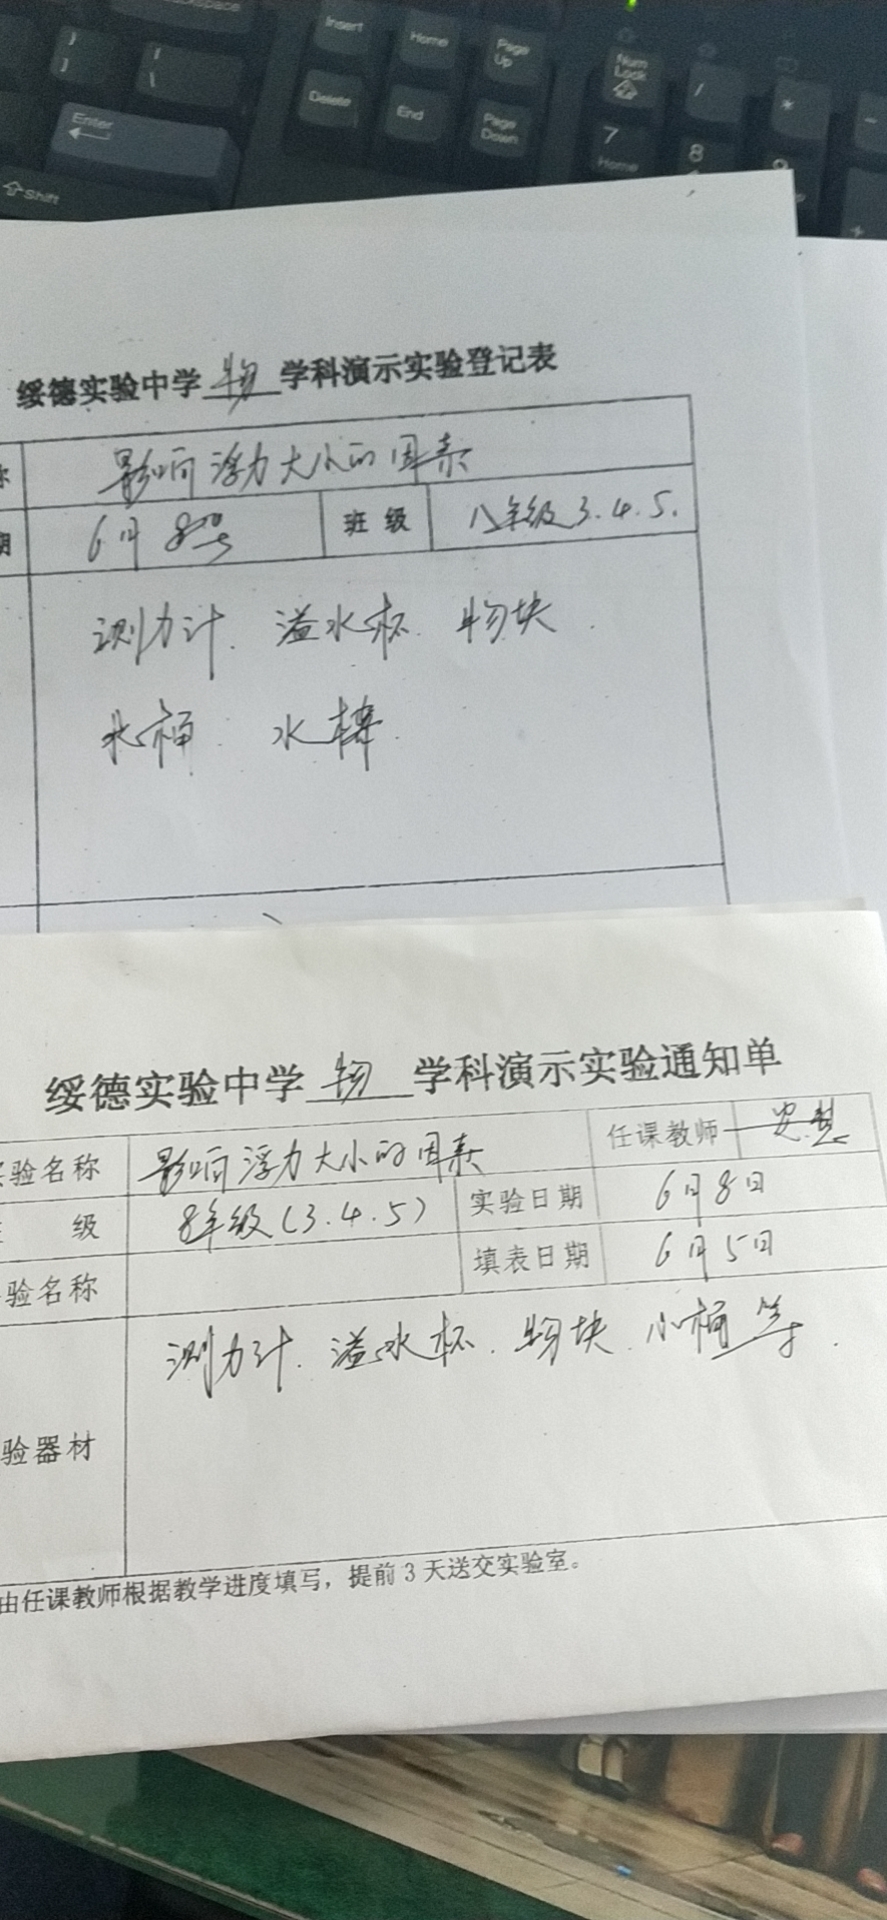 Backspace
Insert
Home
Page Up
Num Lock
/
*
-
}
]
|
\
Delete
End
Page Down
7
Home
8
9
Enter
Shift
+
绥德实验中学 物 学科演示实验登记表
称 影响浮力大小的因素
期 6月8号 班级 八年级3.4.5.
测力计. 溢水杯. 物块.
水桶. 水
绥德实验中学 物 学科演示实验通知单
实验名称 影响浮力大小的因素 任课教师
级 8年级(3.4.5) 实验日期 6月8日
验名称 填表日期 6月5日
验器材 测力计. 溢水杯. 物块. 小桶等.
由任课教师根据教学进度填写，提前3天送交实验室。